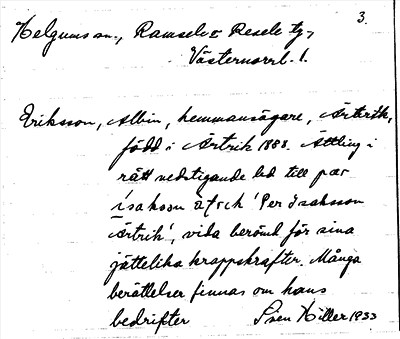 3.
Helgums sn., Ramsele o Resele tg,
Västernorrl. l.
Eriksson, Albin, hemmansägare, Ärtrik,
född i Ärtrik 1888. Ättling i
rätt nedstigande led till per
isaksson 'Per Isaksson
Ärtrik', vida berömd för sina
jättelika kroppskrafter. Många
berättelser finnas om hans
bedrifter Sven Hiller 1933